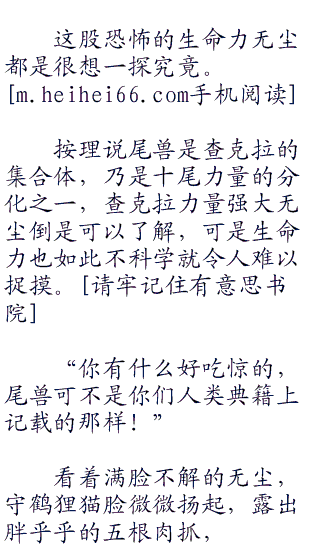 这股恐怖的生命力无尘
都是很想一探究竟。
[m.heihei66.com手机阅读]
按理说尾兽是查克拉的
集合体，乃是十尾力量的分
化之一，查克拉力量强大无
尘倒是可以了解，可是生命
力也如此不科学就令人难以
捉摸。[请牢记住有意思书
院]
“你有什么好吃惊的，
尾兽可不是你们人类典籍上
记载的那样！”
看着满脸不解的无尘，
守鹤狸猫脸微微扬起，露出
胖乎乎的五根肉抓，